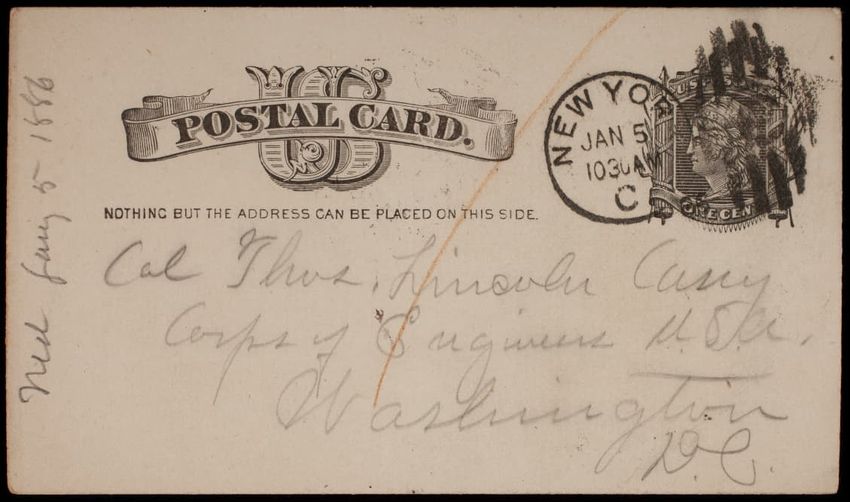 US
POSTAL CARD.
NOTHING BUT THE ADDRESS CAN BE PLACED ON THIS SIDE.
NEW YOR
JAN 5
1030AM
C
U.S.
ONE CENT
Col Thos. Lincoln Casey
Corps of Engineers U.S.A.
Washington
D.C.
Jany 5 1886